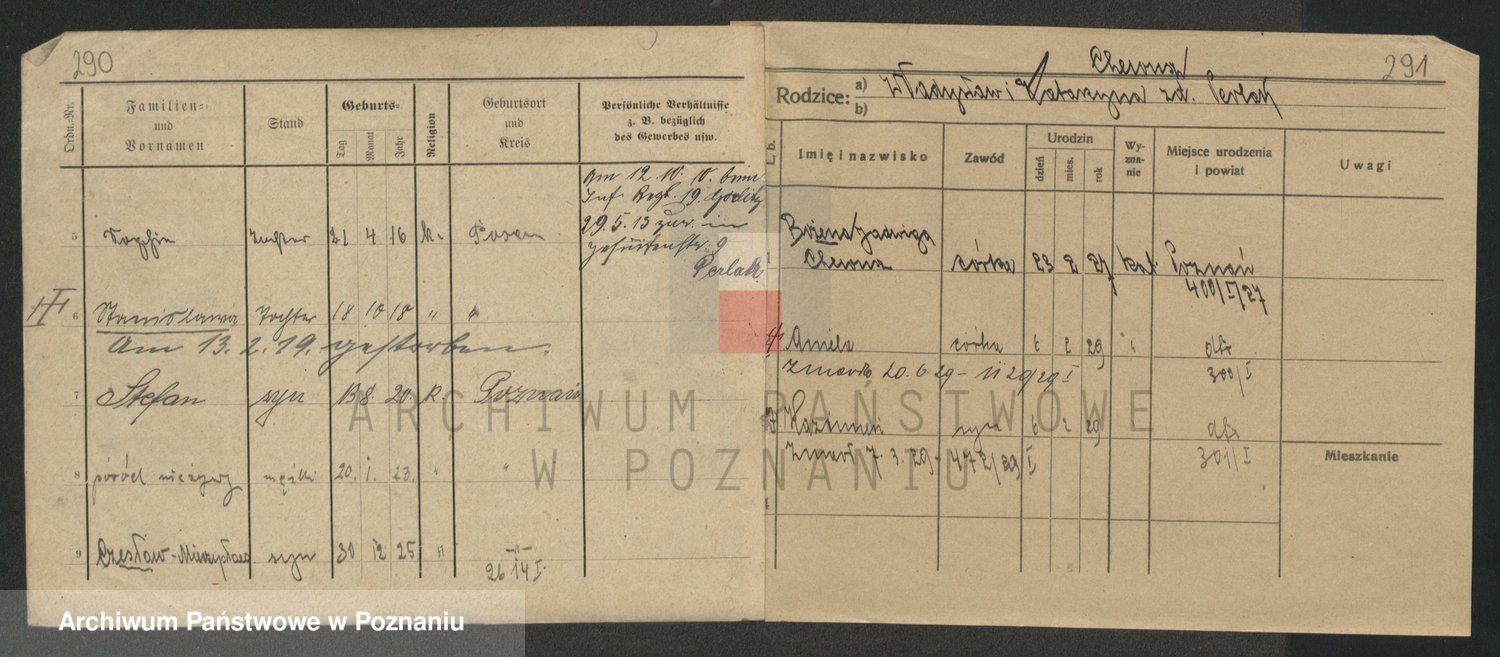 290
Ordn.-Nr.
Familien-
und
Vornamen
Stand
Geburts-
Tag
Monat
Jahr
Religion
Geburtsort
und
Kreis
Persönliche Verhältnisse
z. B. bezüglich
des Gewerbes usw.
Am 12. 10. 10. beim
Inf. Regt. 19. Görlitz
29. 5. 13 zur. in
Jesuitenstr. 9
Perlak
5 Sophie Tochter 21 4 16 k. Posen
6 Stanislawa Tochter 18 10 18 " "
Am 13. 2. 19. gestorben.
7 Stefan syn 13 8. 20. k. Poznań
8 poród nieżywy męski 20. 1. 23. " "
9 Czesław-Mieczysław syn 30 12 25 " -"-
26 14 I.
291
Rodzice:
a)
b)
Władysław i Katarzyna zd. Perlak
L. b.
Imię i nazwisko
Zawód
Urodzin
dzień
mies.
rok
Wy-
zna-
nie
Miejsce urodzenia
i powiat
Uwagi
1 Bożena Jadwiga
córka 23 2 27 kat. Poznań
400/I/27
Aniela córka 6 2 29 "
300/I
Zmarła 20. 6 29 -
Kazimierz syn 6 2 29
301/I
Zmarł 7. 3. 29 - 472/29 I
4
Mieszkanie
ARCHIWUM PAŃSTWOWE
W POZNANIU
Archiwum Państwowe w Poznaniu